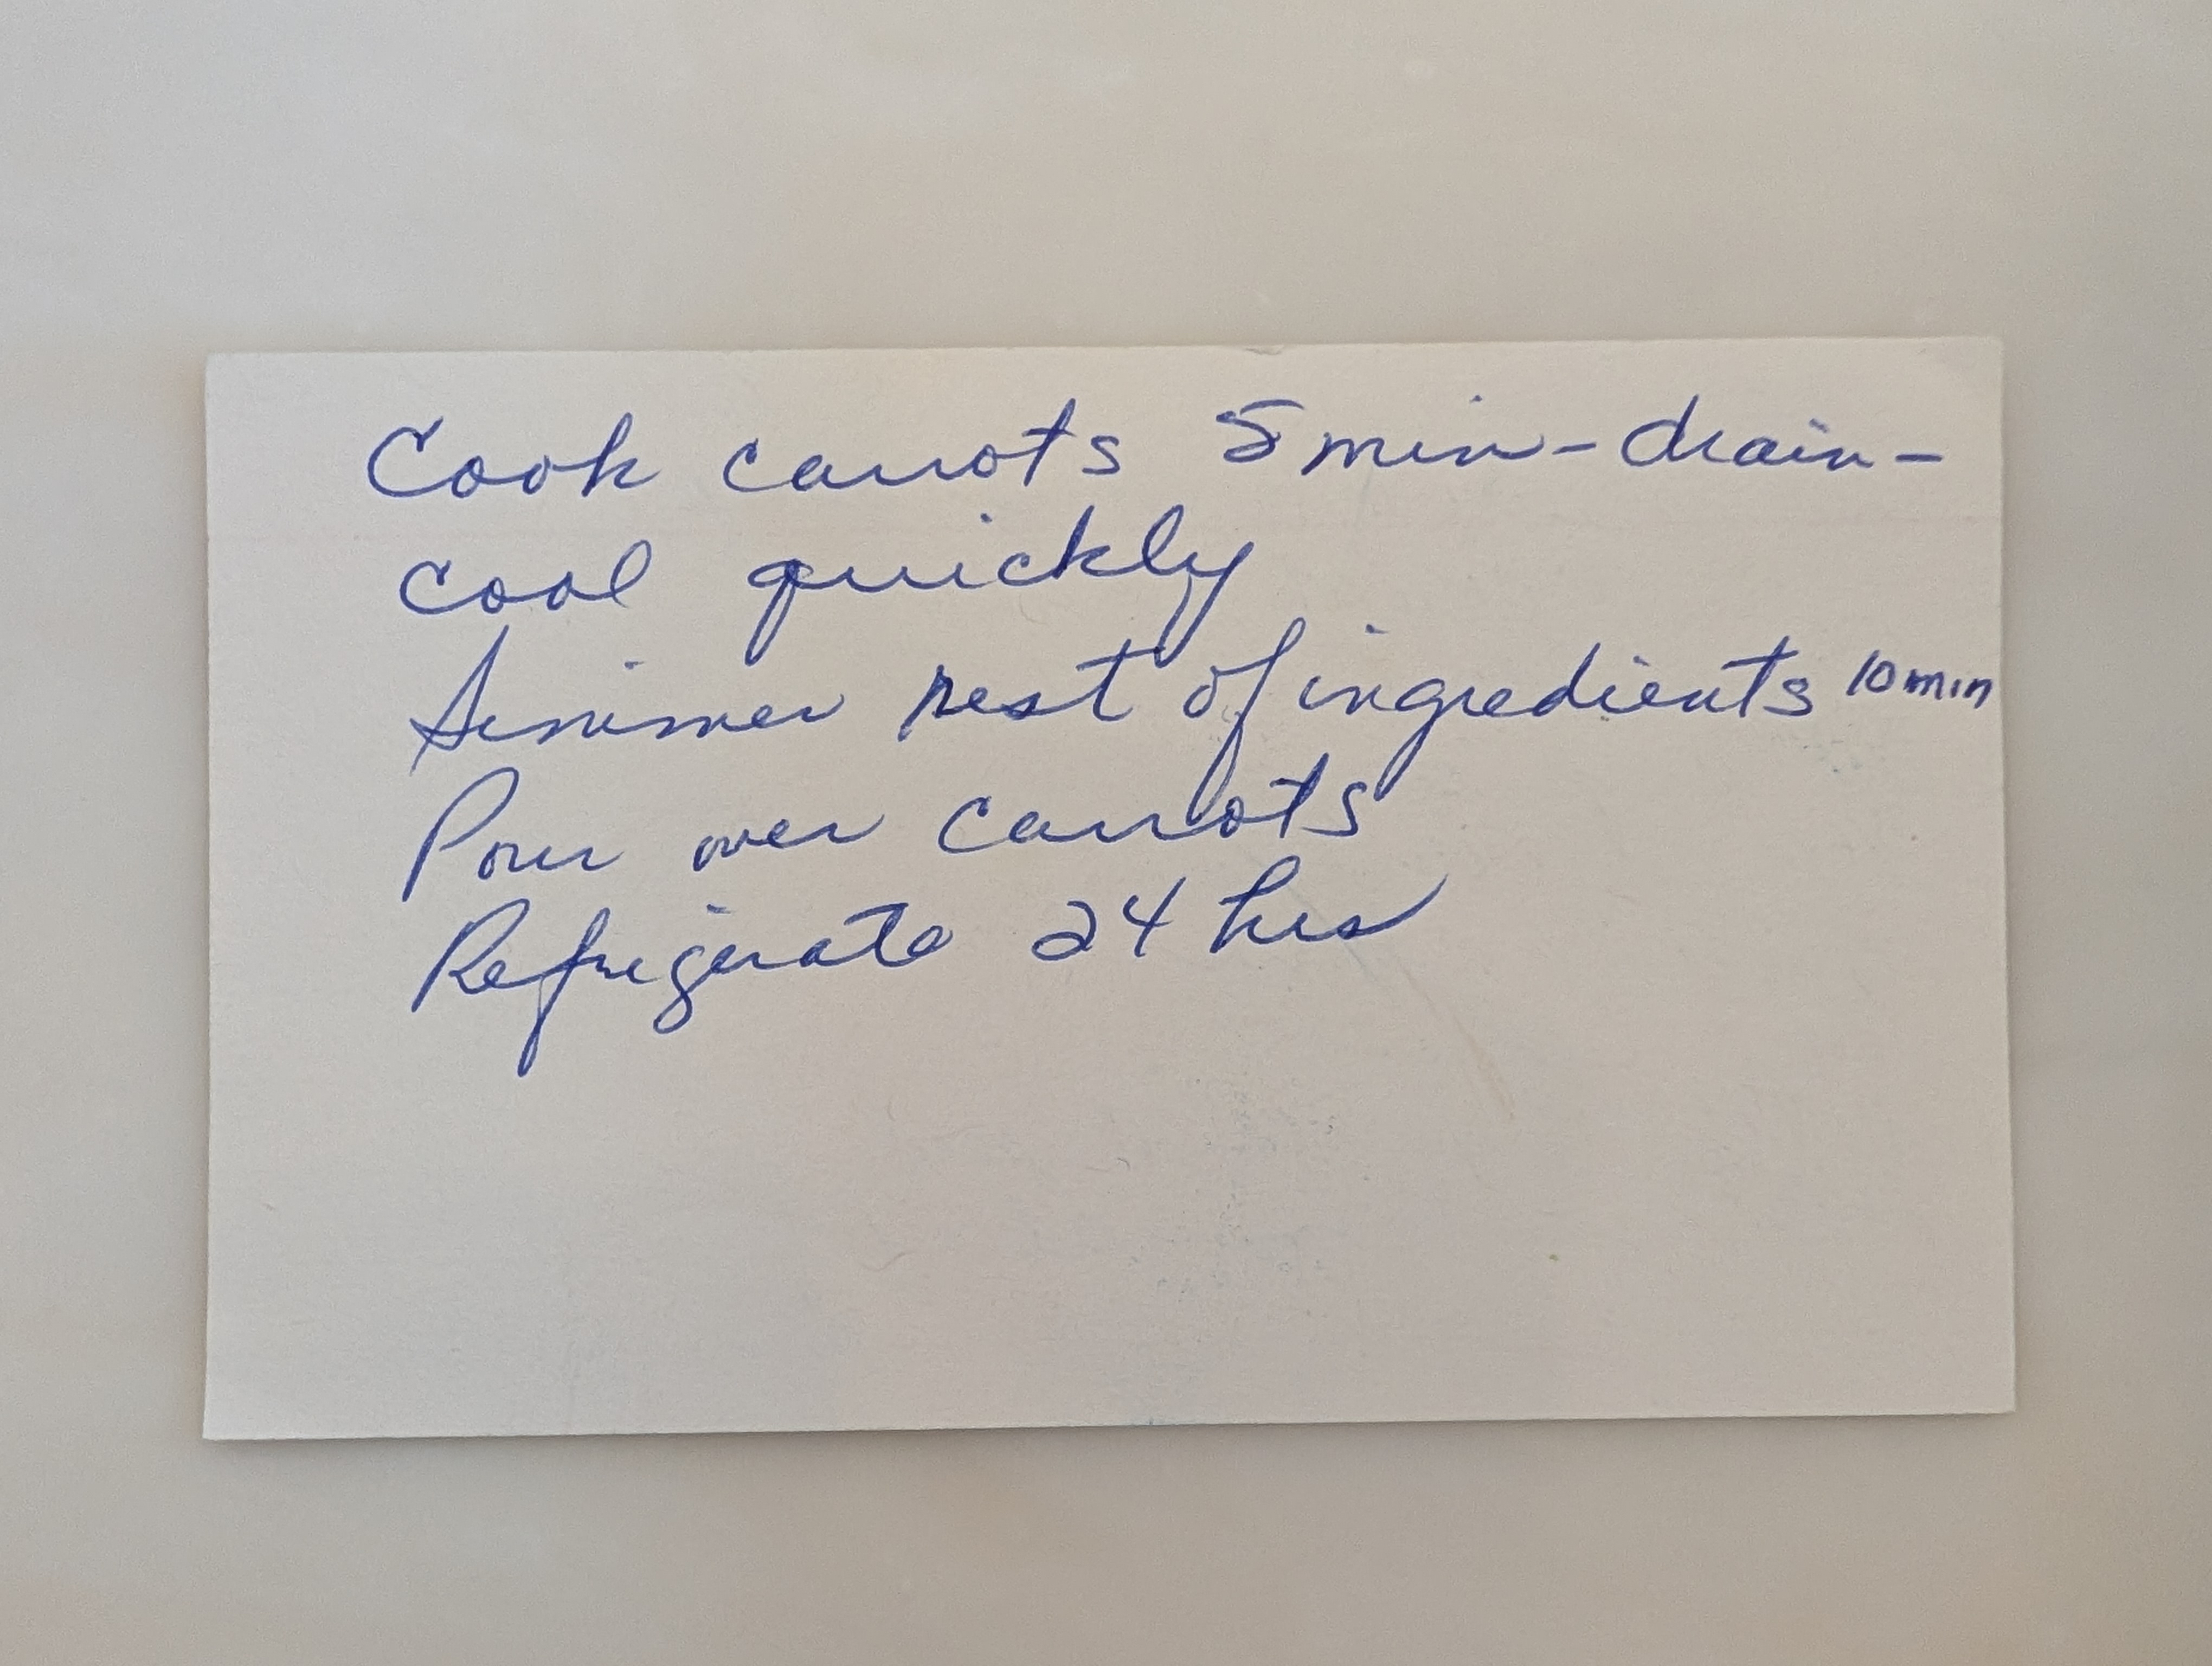 Cook carrots 5 min - drain -
cool quickly
Simmer rest of ingredients 10 min
Pour over carrots
Refrigerate 24 hrs